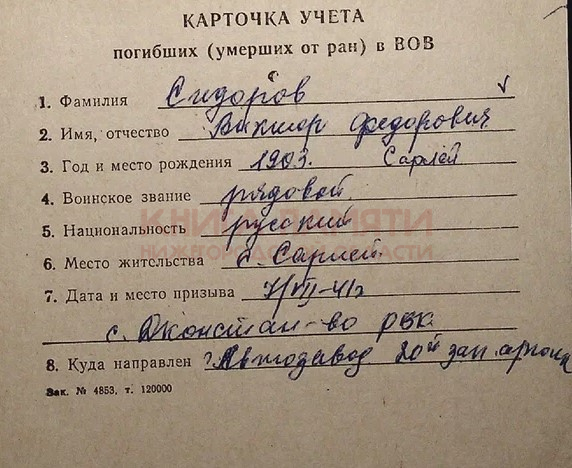 КАРТОЧКА УЧЕТА
погибших (умерших от ран) в ВОВ
1. Фамилия Сидоров
2. Имя, отчество Виктор Федорович
3. Год и место рождения 1903. Сарлей
4. Воинское звание рядовой
КНИГА ПАМЯТИ
5. Национальность русский
НИЖЕГОРОДСКОЙ ОБЛАСТИ
6. Место жительства с. Сарлей
7. Дата и место призыва 7/VIII-41г
с. Дконстан-во РВК
8. Куда направлен г. Автозавод 20й зап.
Зак. № 4853, т. 120000